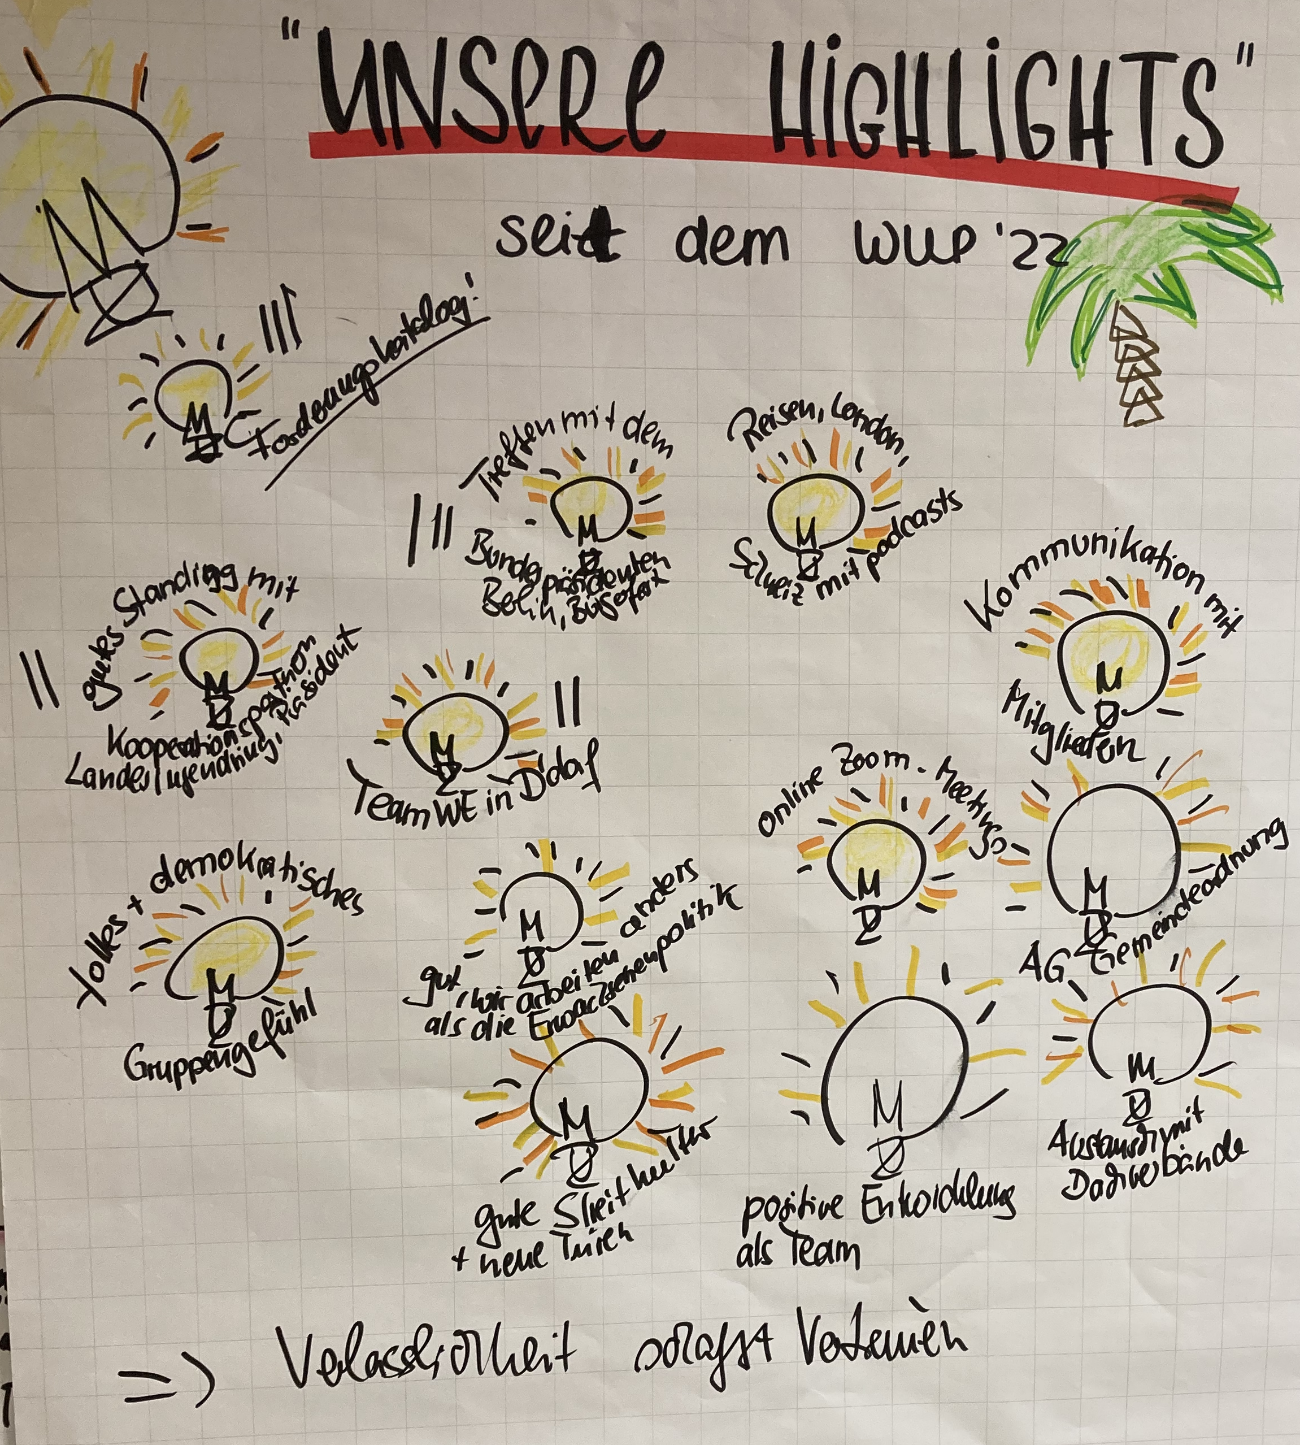 "UNSERE HIGHLIGHTS"
seit dem WUP '22
Forderungskatalog!
Treffen mit dem
Bundespräsidenten
Berlin, Bürgerfest
Reisen, London,
Schweiz mit podcasts
gutes Standigg mit
Kooperationspartnern
Landesjugendring, Präsident
Team WE in D'dorf
Kommunikation mit
Mitgliedern
online Zoom-Meetings
AG Gemeindeordnung
tolles + demokratisches
Gruppengefühl
gut, wir arbeiten anders
als die Erwachsenenpolitik
gute Streitkultur
+ neue
positive Entwicklung
als Team
Austausch mit
Dachverbände
=> Verlässlichkeit schafft Vertrauen